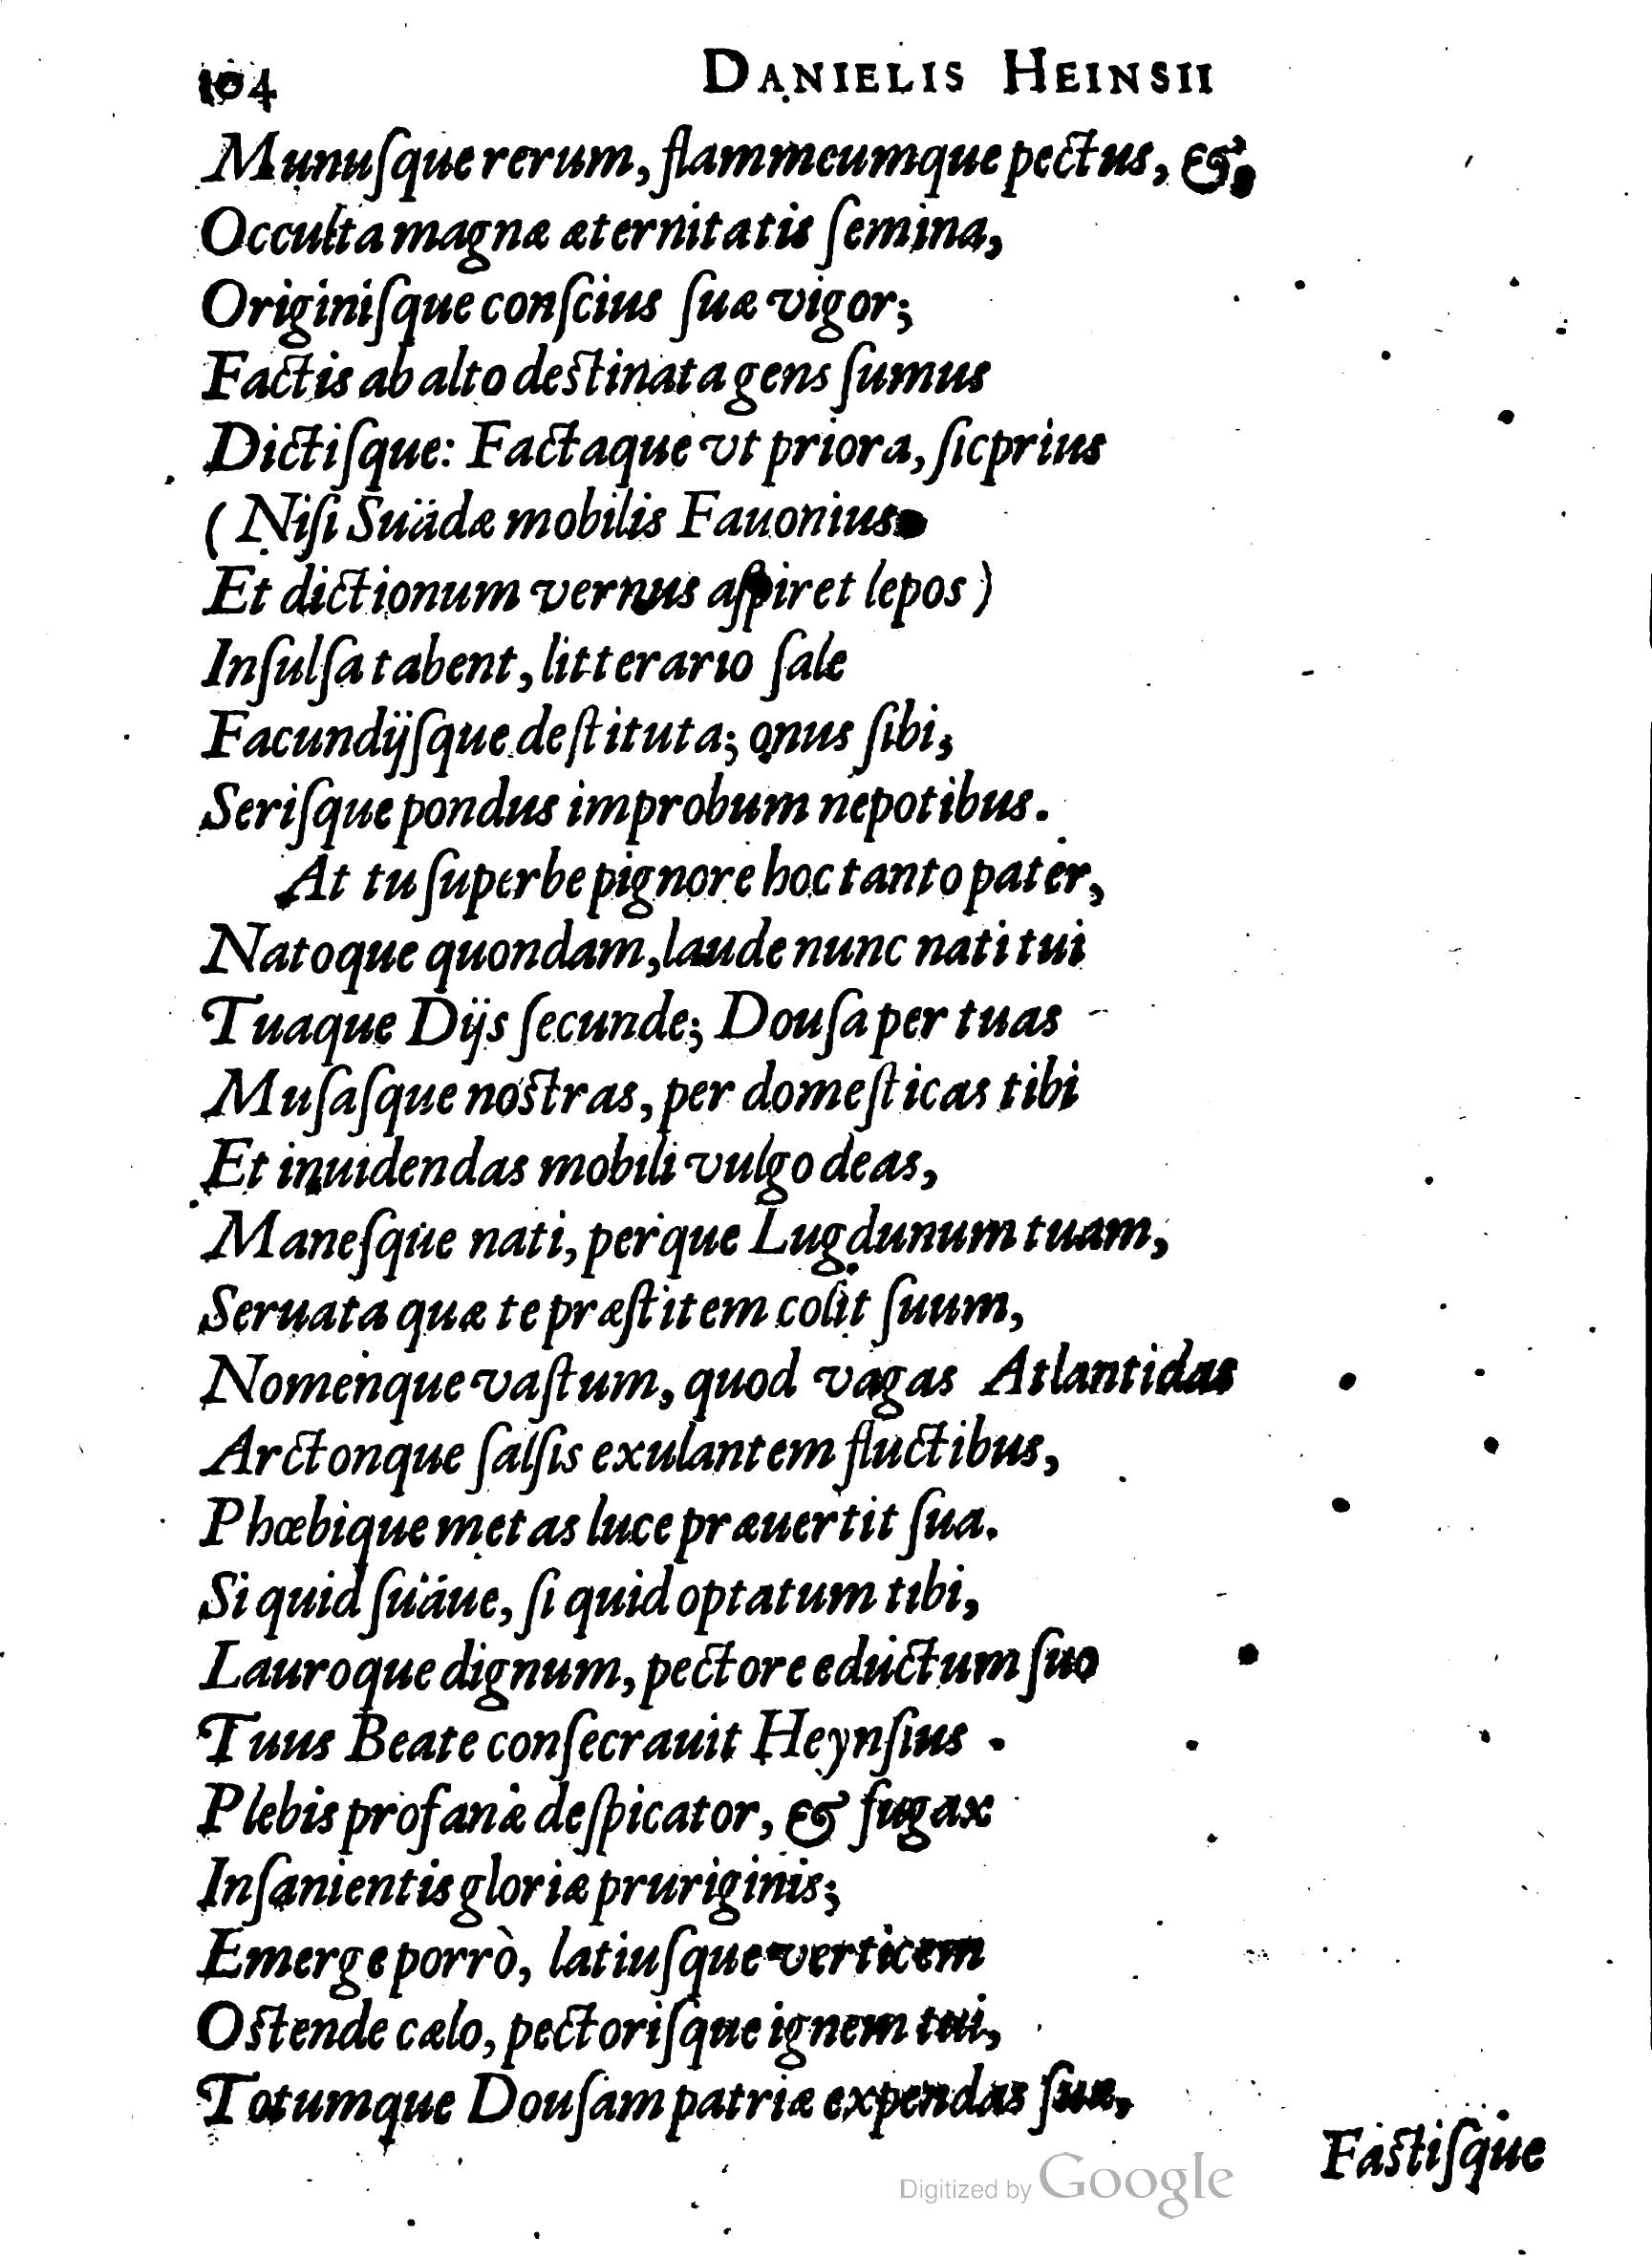 104 DANIELIS HEINSII
Munuſque rerum, flammeumque pectus, &
Occulta magnæ æternitatis ſemina,
Originiſque conſcius ſuæ vigor;
Factis ab alto deſtinata gens ſumus
Dictiſque: Factaque vt priora, ſic prius
( Niſi Suädæ mobilis Fauonius
Et dictionum vernus aſpiret lepos )
Inſulſa tabent, litterario ſale
Facundijſque deſtituta; onus ſibi,
Seriſque pondus improbum nepotibus.
At tu ſuperbe pignore hoc tanto pater,
Natoque quondam, laude nunc nati tui
Tuaque Dijs ſecunde; Douſa per tuas
Muſaſque noſtras, per domeſticas tibi
Et inuidendas mobili vulgo deas,
Maneſque nati, perque Lugdunum tuam,
Seruata quæ te præſtitem colit ſuum,
Nomenque vaſtum, quod vagas Atlantidas
Arctonque ſalſis exulantem fluctibus,
Phœbique metas luce præuertit ſua.
Si quid ſuäue, ſi quid optatum tibi,
Lauroque dignum, pectore eductum ſuo
Tuus Beate conſecrauit Heynſius.
Plebis profanæ deſpicator, & fugax
Inſanientis gloriæ pruriginis;
Emerge porrò, latiuſque verticem
Oſtende cælo, pectoriſque ignem tui,
Totumque Douſam patriæ expendas ſuæ,
Faſtiſque
Digitized by Google